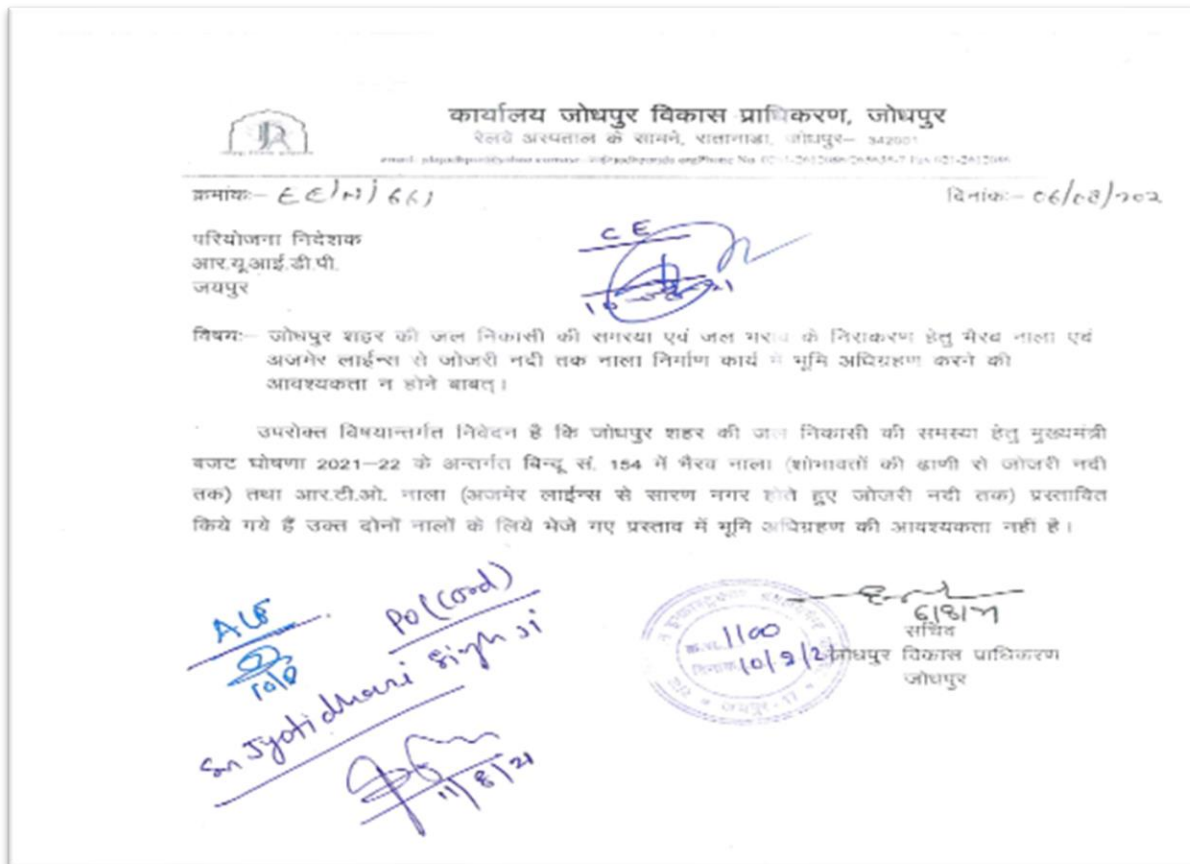 कार्यालय जोधपुर विकास प्राधिकरण, जोधपुर
रेलवे अस्पताल के सामने, रातानाडा, जोधपुर– 342001
क्रमांकः– EE/N/661
दिनांकः– 06/08/202
परियोजना निदेशक
आर.यू.आई.डी.पी.
जयपुर
CE
विषयः– जोधपुर शहर की जल निकासी की समस्या एवं जल भराव के निराकरण हेतु भैरव नाला एवं
अजमेर लाईन्स से जोजरी नदी तक नाला निर्माण कार्य में भूमि अधिग्रहण करने की
आवश्यकता न होने बाबत्।
उपरोक्त विषयान्तर्गत निवेदन है कि जोधपुर शहर की जल निकासी की समस्या हेतु मुख्यमंत्री
बजट घोषणा 2021–22 के अन्तर्गत बिन्दू सं. 154 में भैरव नाला (शोभावतों की ढाणी से जोजरी नदी
तक) तथा आर.टी.ओ. नाला (अजमेर लाईन्स से सारण नगर होते हुए जोजरी नदी तक) प्रस्तावित
किये गये हैं उक्त दोनों नालों के लिये भेजे गए प्रस्ताव में भूमि अधिग्रहण की आवश्यकता नही है।
PO (Cord)
Sri Jyotidhari Singh ji
11/8/21
1100
दिनांक 10/8/2
6/8/21
सचिव
जोधपुर विकास प्राधिकरण
जोधपुर